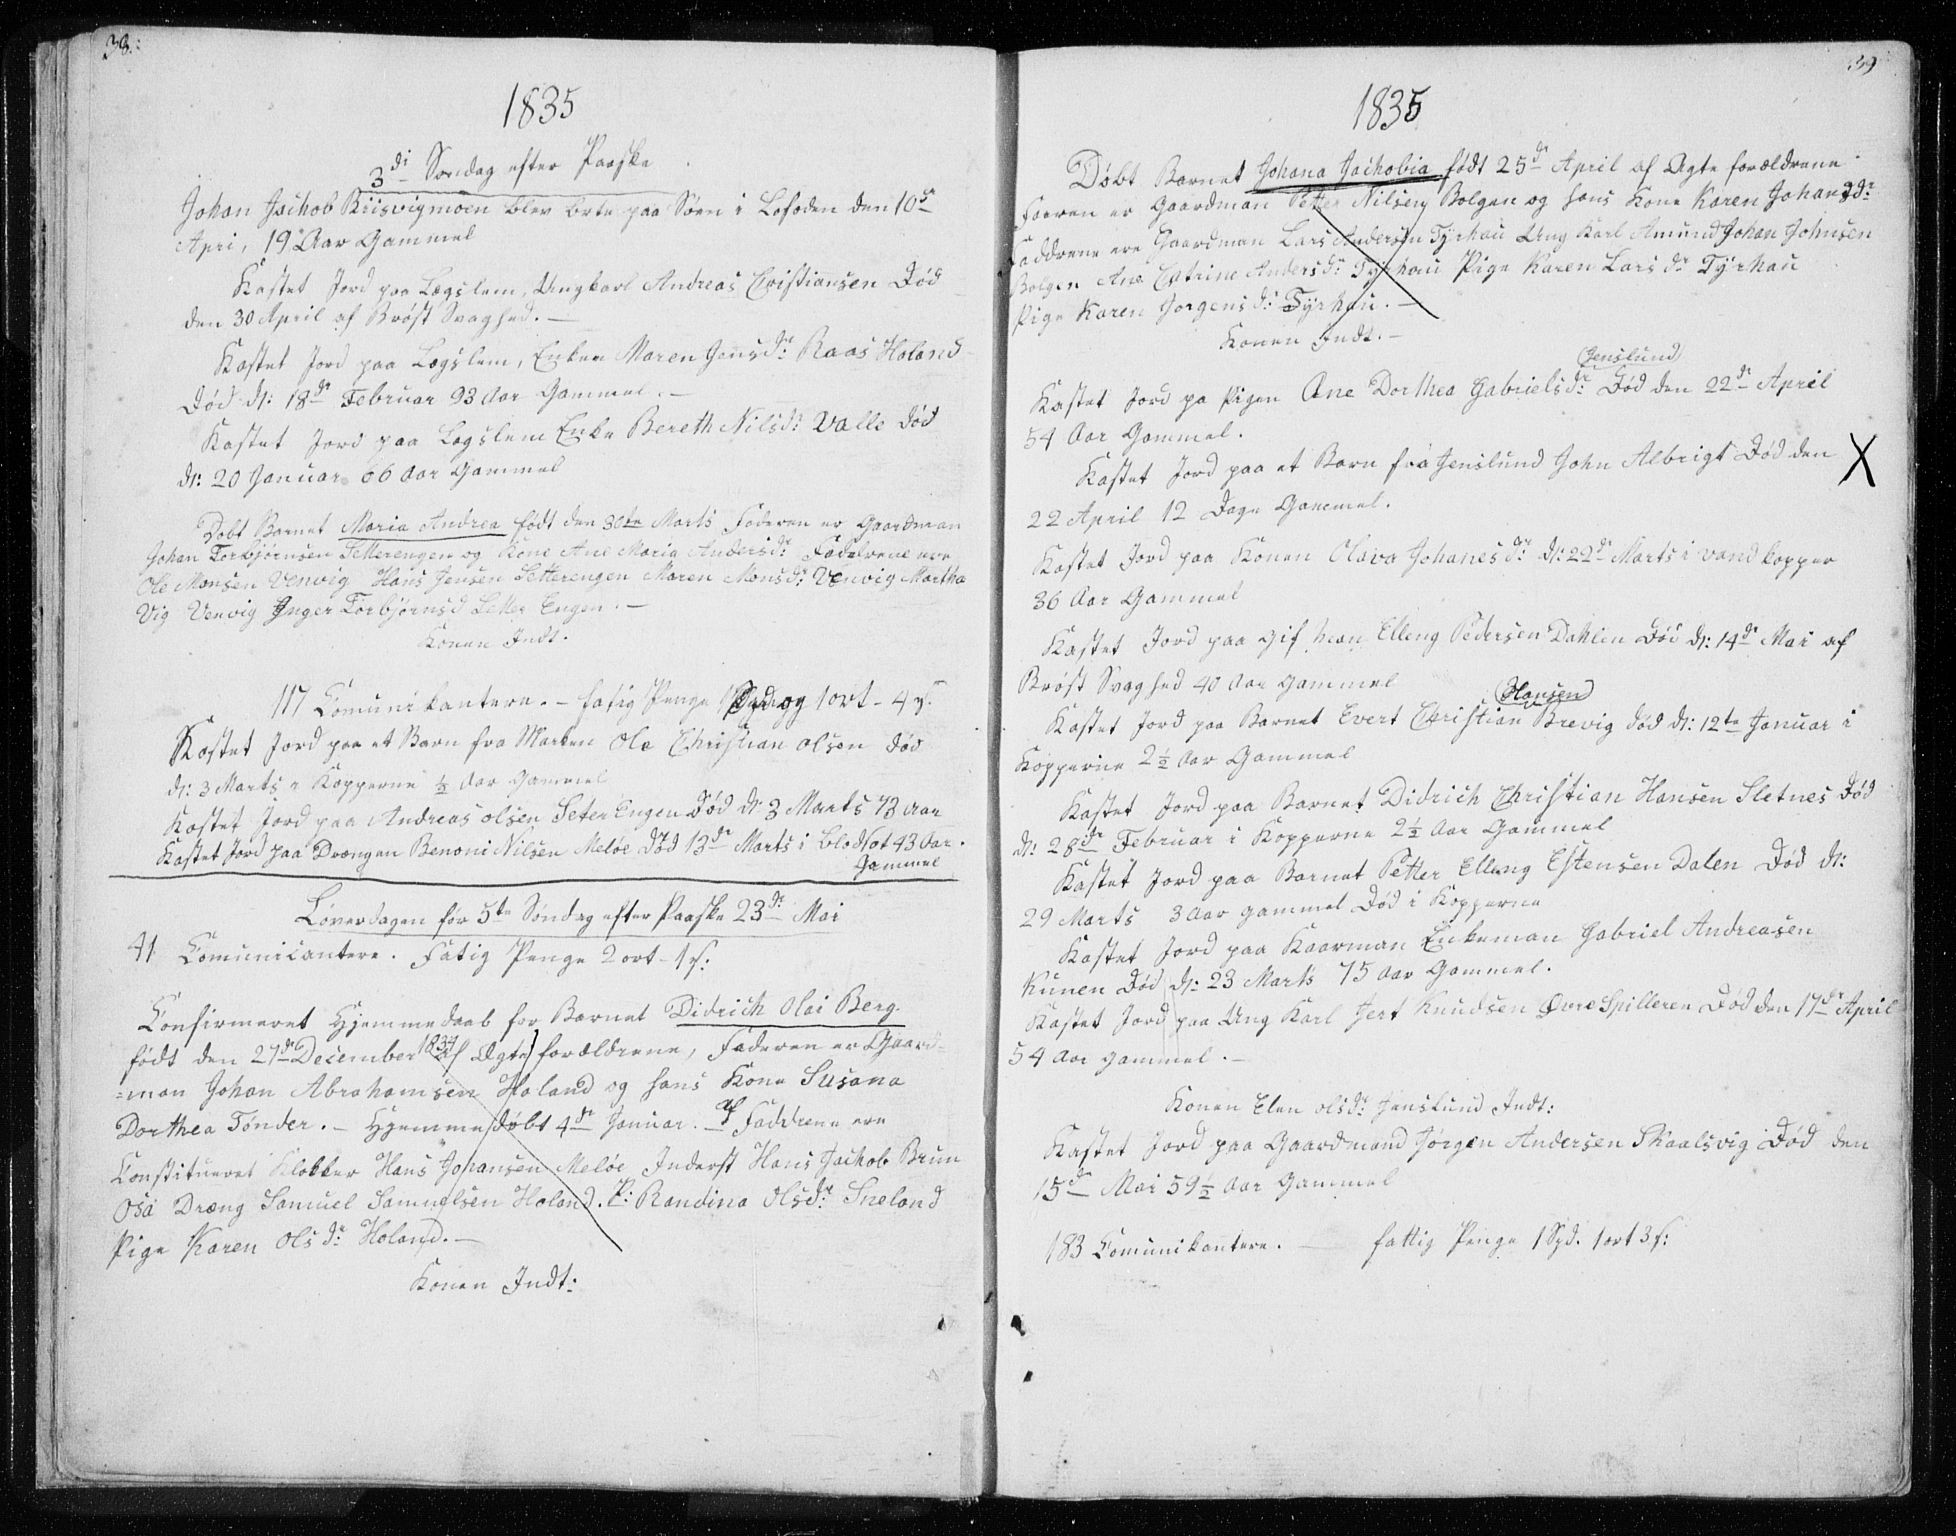 38.
1835
3di Søndag efter Paaske
Johan Jachob Kiisvigmoen blev borte paa Søen i Lofoden den 10de
Apri, 19 Aar Gammel
Kastet Jord paa Legslem, Ungkarl Andreas Cristiansen Død
den 30 April af Brøst Svaghed. —
Kastet Jord paa Legslem, Enken Maren Jensdr: Raas Holand
Død d: 18de Februar 93 Aar Gammel. —
Kastet Jord paa Legslem Enke Bereth Nilsdr: Valle Død
d: 20 Januar 66 Aar Gammel
Dobt Barnet Maria Andrea født den 30te Marts Faderen er Gaardman
Johan Torbjørnsen Setterengen og Kone Ane Maria Andersdr: Fadderne ere
Ole Monsen Venvig Hans Jensen Setterengen Maren Monsdr: Venvig Martha
Vig Venvig Inger Torbjørnsd Setter Engen. —
Konen Indt.
117 Comunikantere. — fatig Penge og 1 ort - 4 s.
Kastet Jord paa et Barn fra Marken Ole Christian Olsen død
d: 3 Marts i Kopperne ½ Aar Gammel
Kastet Jord paa Andreas Olsen Seter Engen Død d: 3 Marts 73 Aar
Kastet Jord paa Drængen Benoni Nilsen Meløe død 13de Marts i Blodsot 43 Aar.
Gammel
Løverdagen før 5te Søndag efter Paaske 23de Mai
41 Comunicantere. Fatig Penge 2 ort - 1 s:
Confirmeret Hjemmedaab for Barnet Didrich Olai Berg.
født den 27de December 1834 af Ægte forældrene, Faderen er Gaard=
=man Johan Abrahamsen Holand og hans Kone Susana
Dorthea Tønder. — Hjemmedøbt 4de Januar. — Faddrene ere
Constitueret Klokker Hans Johansen Meløe Inderst Hans Jachob Brun
Osa Dræng Samuel Samuelsen Holand. P: Randina Olsdr: Sneland
Pige Karen Olsdr: Holand. —
Konen Indt:
39
1835
Døbt Barnet Johana Jachobia født 25de April af Ægte forældrene
Faaren er Gaardman Petter Nilsen Bolgen og hans Kone Karen Johansdr
Faddrene ere Gaardman Lars Andersen Tyrhau Ung Karl Amund Johan Johnsen
Bolgen Ane Catrine Andersdr: Tyrhau Pige Karen Larsdr Tyrhau
Pige Karen Jorgensdr: Tyrhau. —
Konen Indt. —
(Jenslund)
Kastet Jord pa Pigen Ane Dorthea Gabrielsdr: Død den 22de April
54 Aar Gammel.
Kastet Jord paa et Barn fra Jenslund John Albrigt Død den X
22 April 12 Dage Gammel.
Kastet Jord paa Konen Olava Johanesdr: d: 22de Marts i vand kopper
36 Aar Gammel
Kastet Jord paa gif man Elleng Pedersen Dahlen Død d: 14de Mai af
Brøst Svaghed 40 Aar Gammel
(Hansen)
Kastet Jord paa Barnet Evert Christian Brevig død d: 12te Januar i
Kopperne 2½ Aar Gammel
Kastet Jord paa Barnet Didrich Christian Hansen Sletnes Død
d: 28de Februar i Kopperne 2½ Aar Gammel
Kastet Jord paa Barnet Petter Elleng Estensen Dalen Død d:
29 Marts 3 Aar gammel Død i Kopperne
Kastet Jord paa Kaarman Enkeman Gabriel Andreasen
Kunen Død d: 23 Marts 75 Aar Gammel.
Kastet Jord paa Ung Karl Jert Knudsen Øvre Spilleren Død den 17de April
54 Aar gammel. —
Konen Elen Olsdr: Jenslund Indt:
Kastet Jord paa Gaardmand Jørgen Andersen Skaalsvig Død den
15de Mai 59½ Aar Gammel
183 Comunikantere. — fattig Penge 1 Spd. 1 ort 3 s: